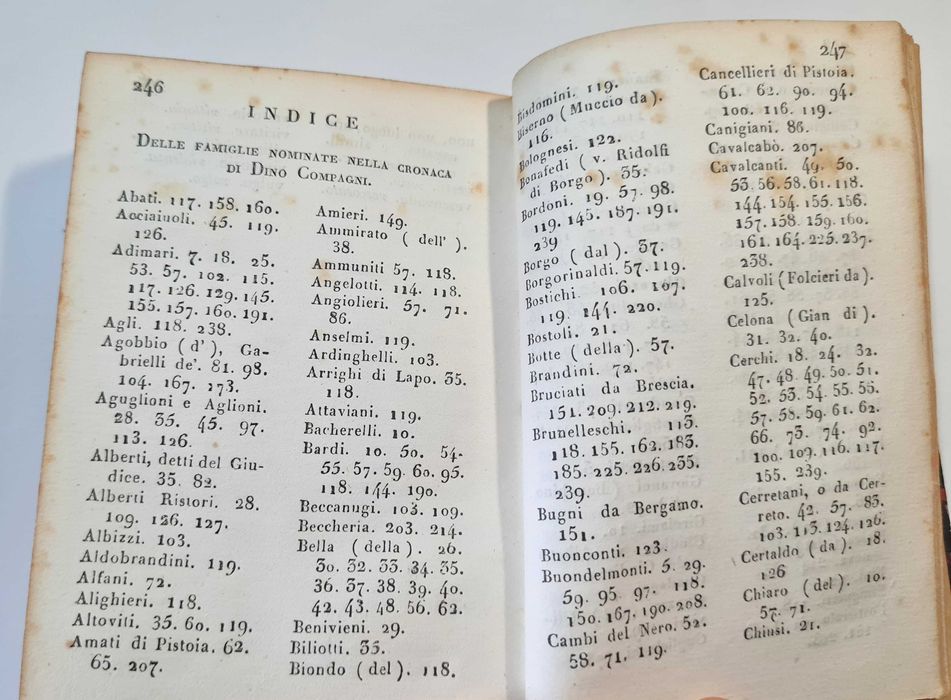 246
INDICE
DELLE FAMIGLIE NOMINATE NELLA CRONACA
DI DINO COMPAGNI.
Abati. 117. 158. 160.
Acciaiuoli. 45. 119.
126.
Adimari. 7. 18. 25.
53. 57. 102. 115.
117. 126. 129. 145.
155. 157. 160. 191.
Agli. 118. 238.
Agobbio (d'), Ga-
brielli de'. 81. 98.
104. 167. 173.
Aguglioni e Aglioni.
28. 35. 45. 97.
113. 126.
Alberti, detti del Giu-
dice. 35. 82.
Alberti Ristori. 28.
109. 126. 127.
Albizzi. 103.
Aldobrandini. 119.
Alfani. 72.
Alighieri. 118.
Altoviti. 35. 60. 119.
Amati di Pistoia. 62.
65. 207.
Amieri. 149.
Ammirato ( dell' ).
38.
Ammuniti 57. 118.
Angelotti. 114. 118.
Angiolieri. 57. 71.
86.
Anselmi. 119.
Ardinghelli. 103.
Arrighi di Lapo. 35.
118.
Attaviani. 119.
Bacherelli. 10.
Bardi. 10. 50. 54.
55. 57. 59. 60. 95.
118. 144. 190.
Beccanugi. 103. 109.
Beccheria. 203. 214.
Bella ( della ). 26.
30. 32. 33. 34. 35.
36. 37. 38. 39. 40.
42. 43. 48. 56. 62.
Benivieni. 29.
Biliotti. 35.
Biondo ( del ). 118.
247
Bisdomini. 119.
Biserno ( Muccio da ).
116.
Bolognesi. 122.
Bonafedi ( v. Ridolfi
di Borgo ). 35.
Bordoni. 19. 57. 98.
119. 145. 187. 191.
239
Borgo ( dal ). 37.
Borgorinaldi. 57. 119.
Bostichi. 106. 107.
119. 144. 220.
Bostoli. 21.
Botte ( della ). 57.
Brandini. 72.
Bruciati da Brescia.
151. 209. 212. 219.
Brunelleschi. 113.
118. 155. 162. 183.
185. 225. 226. 235.
239.
Bugni da Bergamo.
151.
Buonconti. 123.
Buondelmonti. 5. 29.
59. 95. 97. 118.
150. 167. 190. 208.
Cambi del Nero. 52.
58. 71. 119.
Cancellieri di Pistoia.
61. 62. 90. 94.
100. 116. 119.
Canigiani. 86.
Cavalcabò. 207.
Cavalcanti. 49. 50.
53. 56. 58. 61. 118.
144. 154. 155. 156.
157. 158. 159. 160.
161. 164. 225. 237.
238.
Calvoli ( Folcieri da ).
125.
Celona ( Gian di ).
31. 32. 40.
Cerchi. 18. 24. 32.
47. 48. 49. 50. 51.
52. 53. 54. 55. 56.
57. 58. 59. 61. 62.
66. 73. 74. 92.
100. 109. 116. 117.
155. 239.
Cerretani, o da Cer-
reto. 42. 57. 83.
103. 113. 124. 126.
Certaldo ( da ). 18.
126
Chiaro ( del ). 10.
57. 71.
Chiusi. 21.